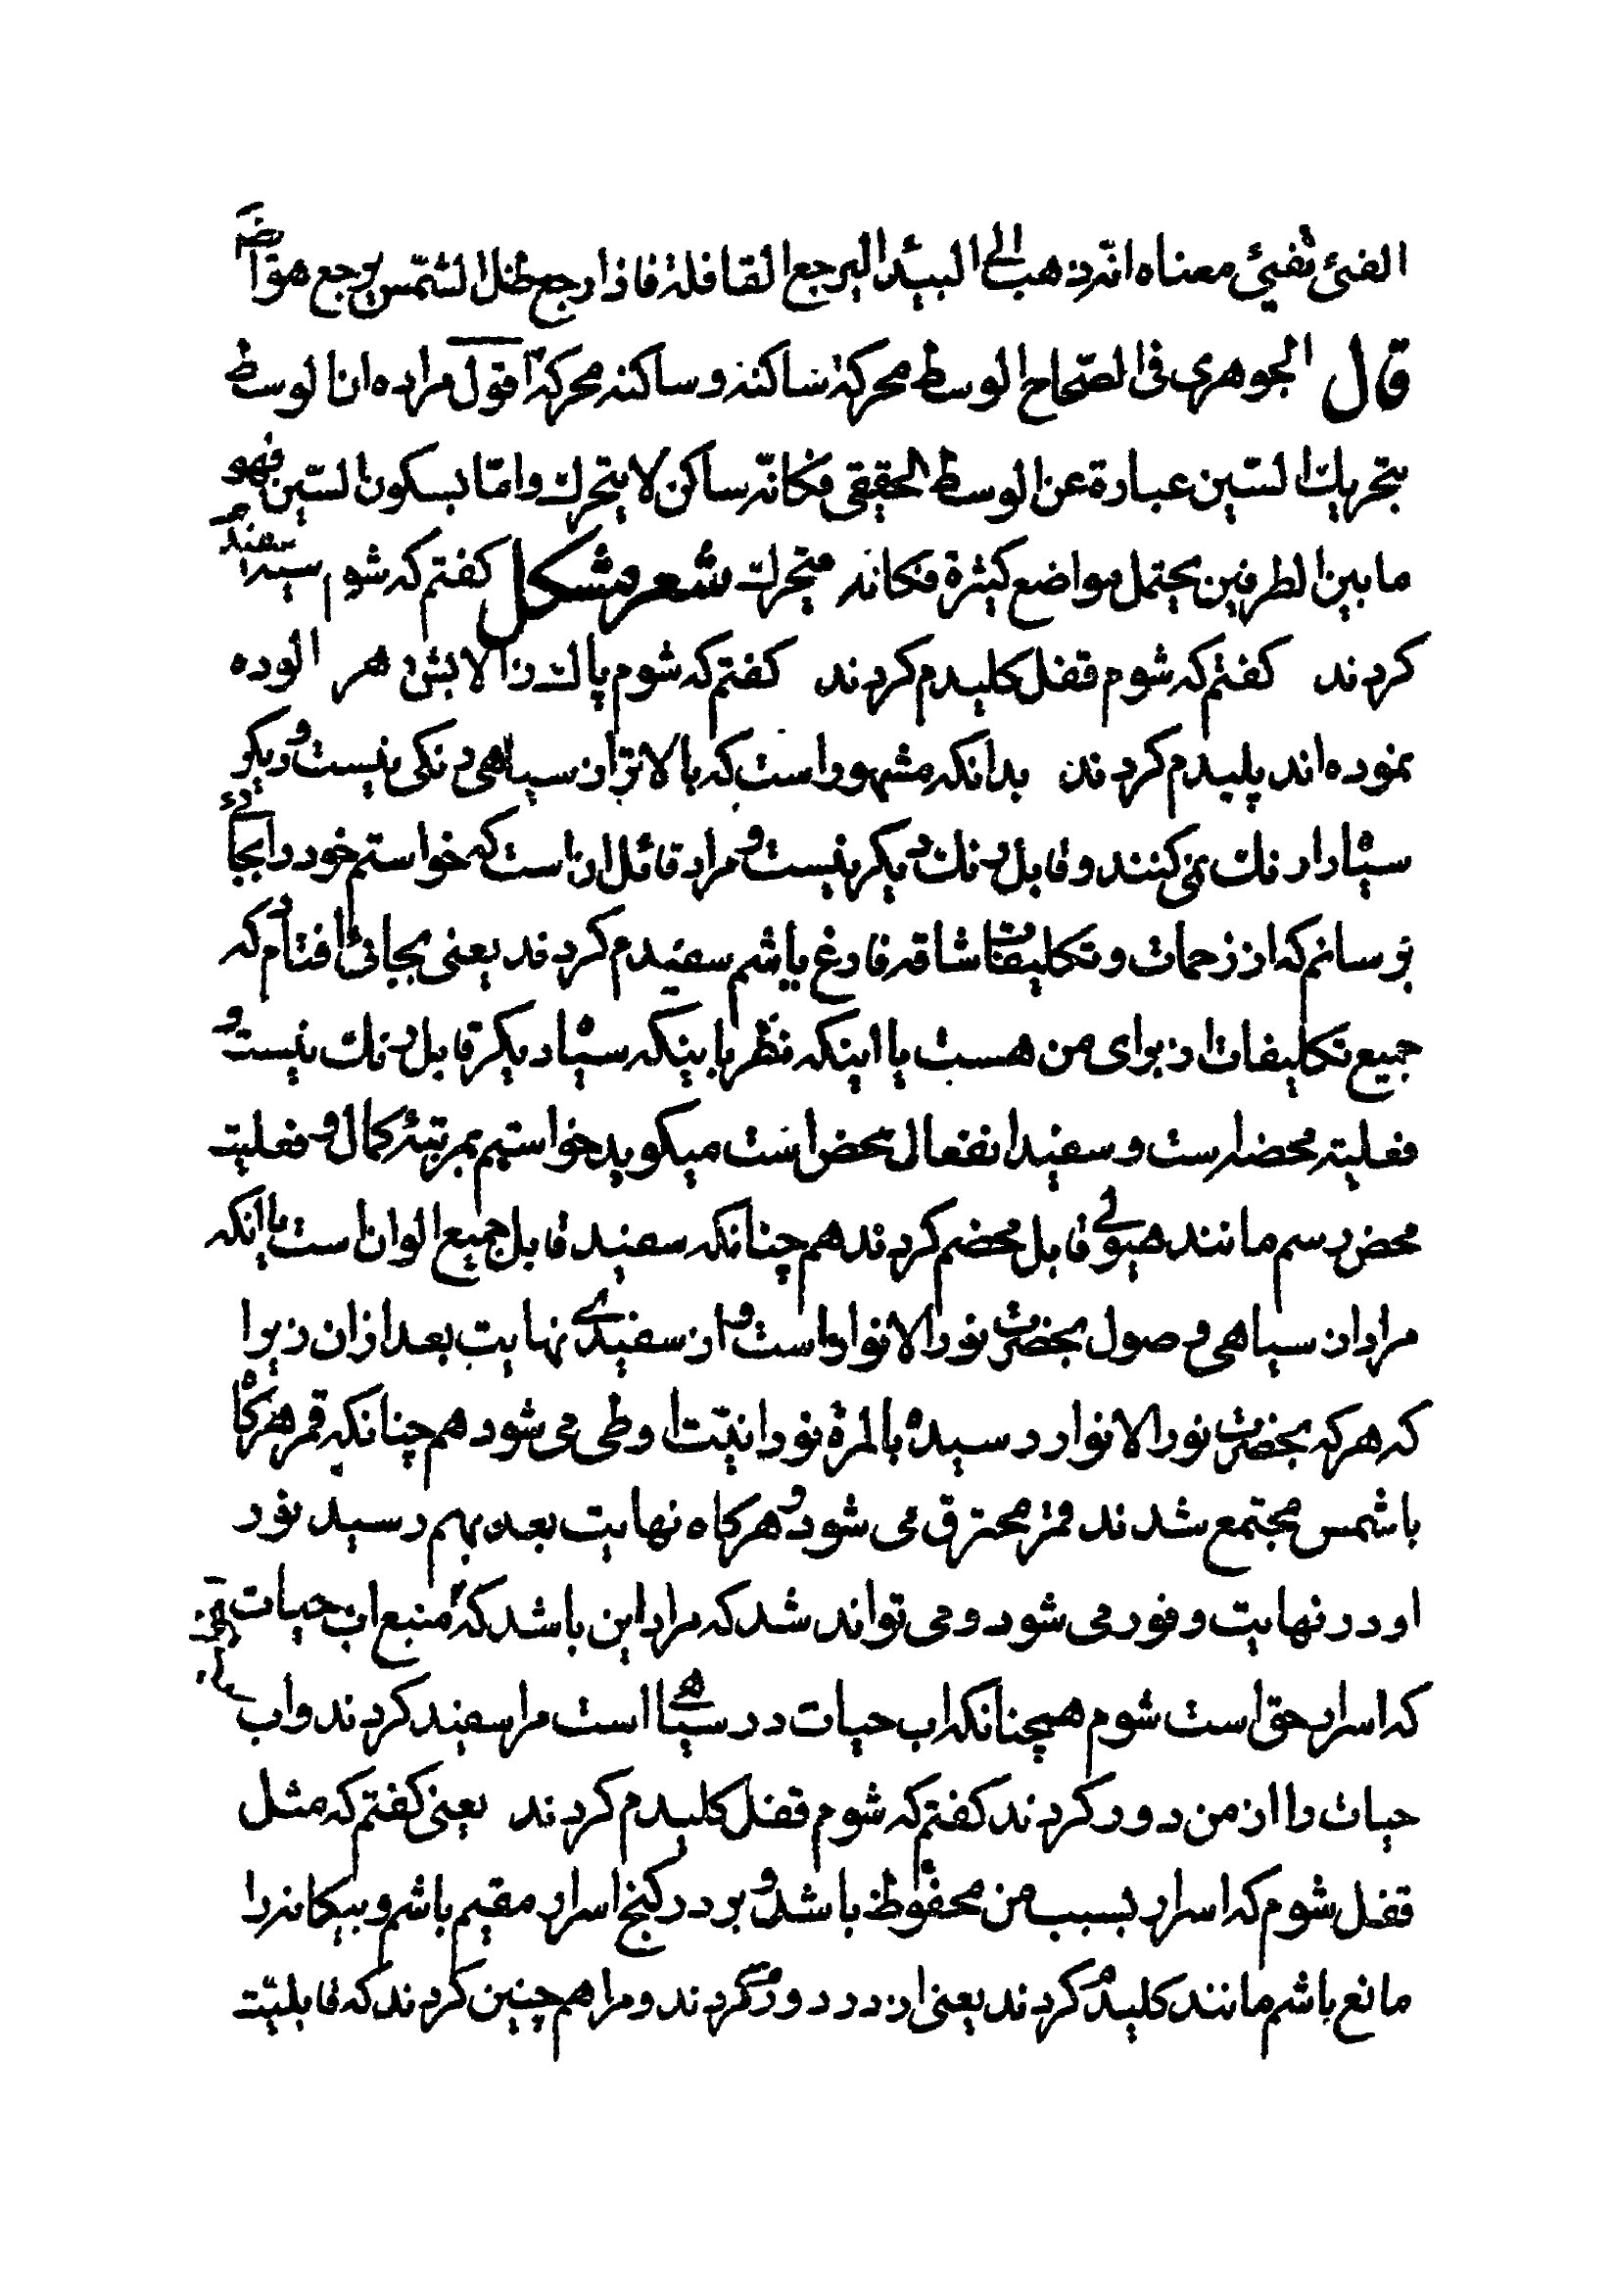 الفئ تفیئ معناه انه ذهب الی البیدا لیرجع القافلة فاذا رجع ظل الشمس یرجع هو ایضا
قال الجوهری فی الصحاح الوسط محرکة ساکنة وساکنه محرکة اقول مراده ان الوسط
بتحریك السین عبارة عن الوسط الحقیقی فکانه ساکن لا یتحرك واما بسکون السین فهو
ما بین الطرفین یحتمل مواضع کثیرة فکانه متحرك شعر مشکل کفتم که شوم سیه سفیدم
کردند کفتم که شوم قفل کلیدم کردند کفتم که شوم پاك ز الایش هر الوده
نموده اند پلیدم کردند بدانکه مشهور است که بالاتر از سیاهی رنکی نیست و دیکر
سیاه را رنك نمی کنند و قابل رنك دیکر نیست و مراد قائل انست که خواستم خود را بجائی
برسانم که از زحمات و تکلیفات شاقه فارغ باشم سفیدم کردند یعنی بجائی افتادم که
جمیع تکلیفات از برای من هست یا اینکه نظر باینکه سیاه دیکر قابل رنك نیست و
فعلیته محضه است و سفید انفعال محض است میکوید خواستیم بمرتبۀ کمال و فعلیته
محض رسم مانند هیولی قابل محضم کردند هم چنانکه سفید قابل جمیع الوان است یا اینکه
مراد از سیاهی وصول بحضرت نور الانوار است و از سفیدی نهایت بعد از ان زیرا
که هر که بحضرت نور الانوار رسیده بالمرة نورانیت او طی می شود هم چنانکه قمر هر کاه
با شمس مجتمع شدند قمر محترق می شود و هر کاه نهایت بعد بهم رسید نور
او در نهایت وفور می شود و می تواند شد که مراد این باشد که منبع اب حیات
که اسرار حق است شوم همچنانکه اب حیات در سیاهی است مرا سفید کردند و اب
حیات را از من دور کردند کفتم که شوم قفل کلیدم کردند یعنی کفتم که مثل
قفل شوم که اسرار بسبب من محفوظ باشد و بر در کنج اسرار مقیم باشم و بیکانه را
مانع باشم مانند کلیدم کردند یعنی از در دورم کردند و مرا هم چنین کردند که قابلیت